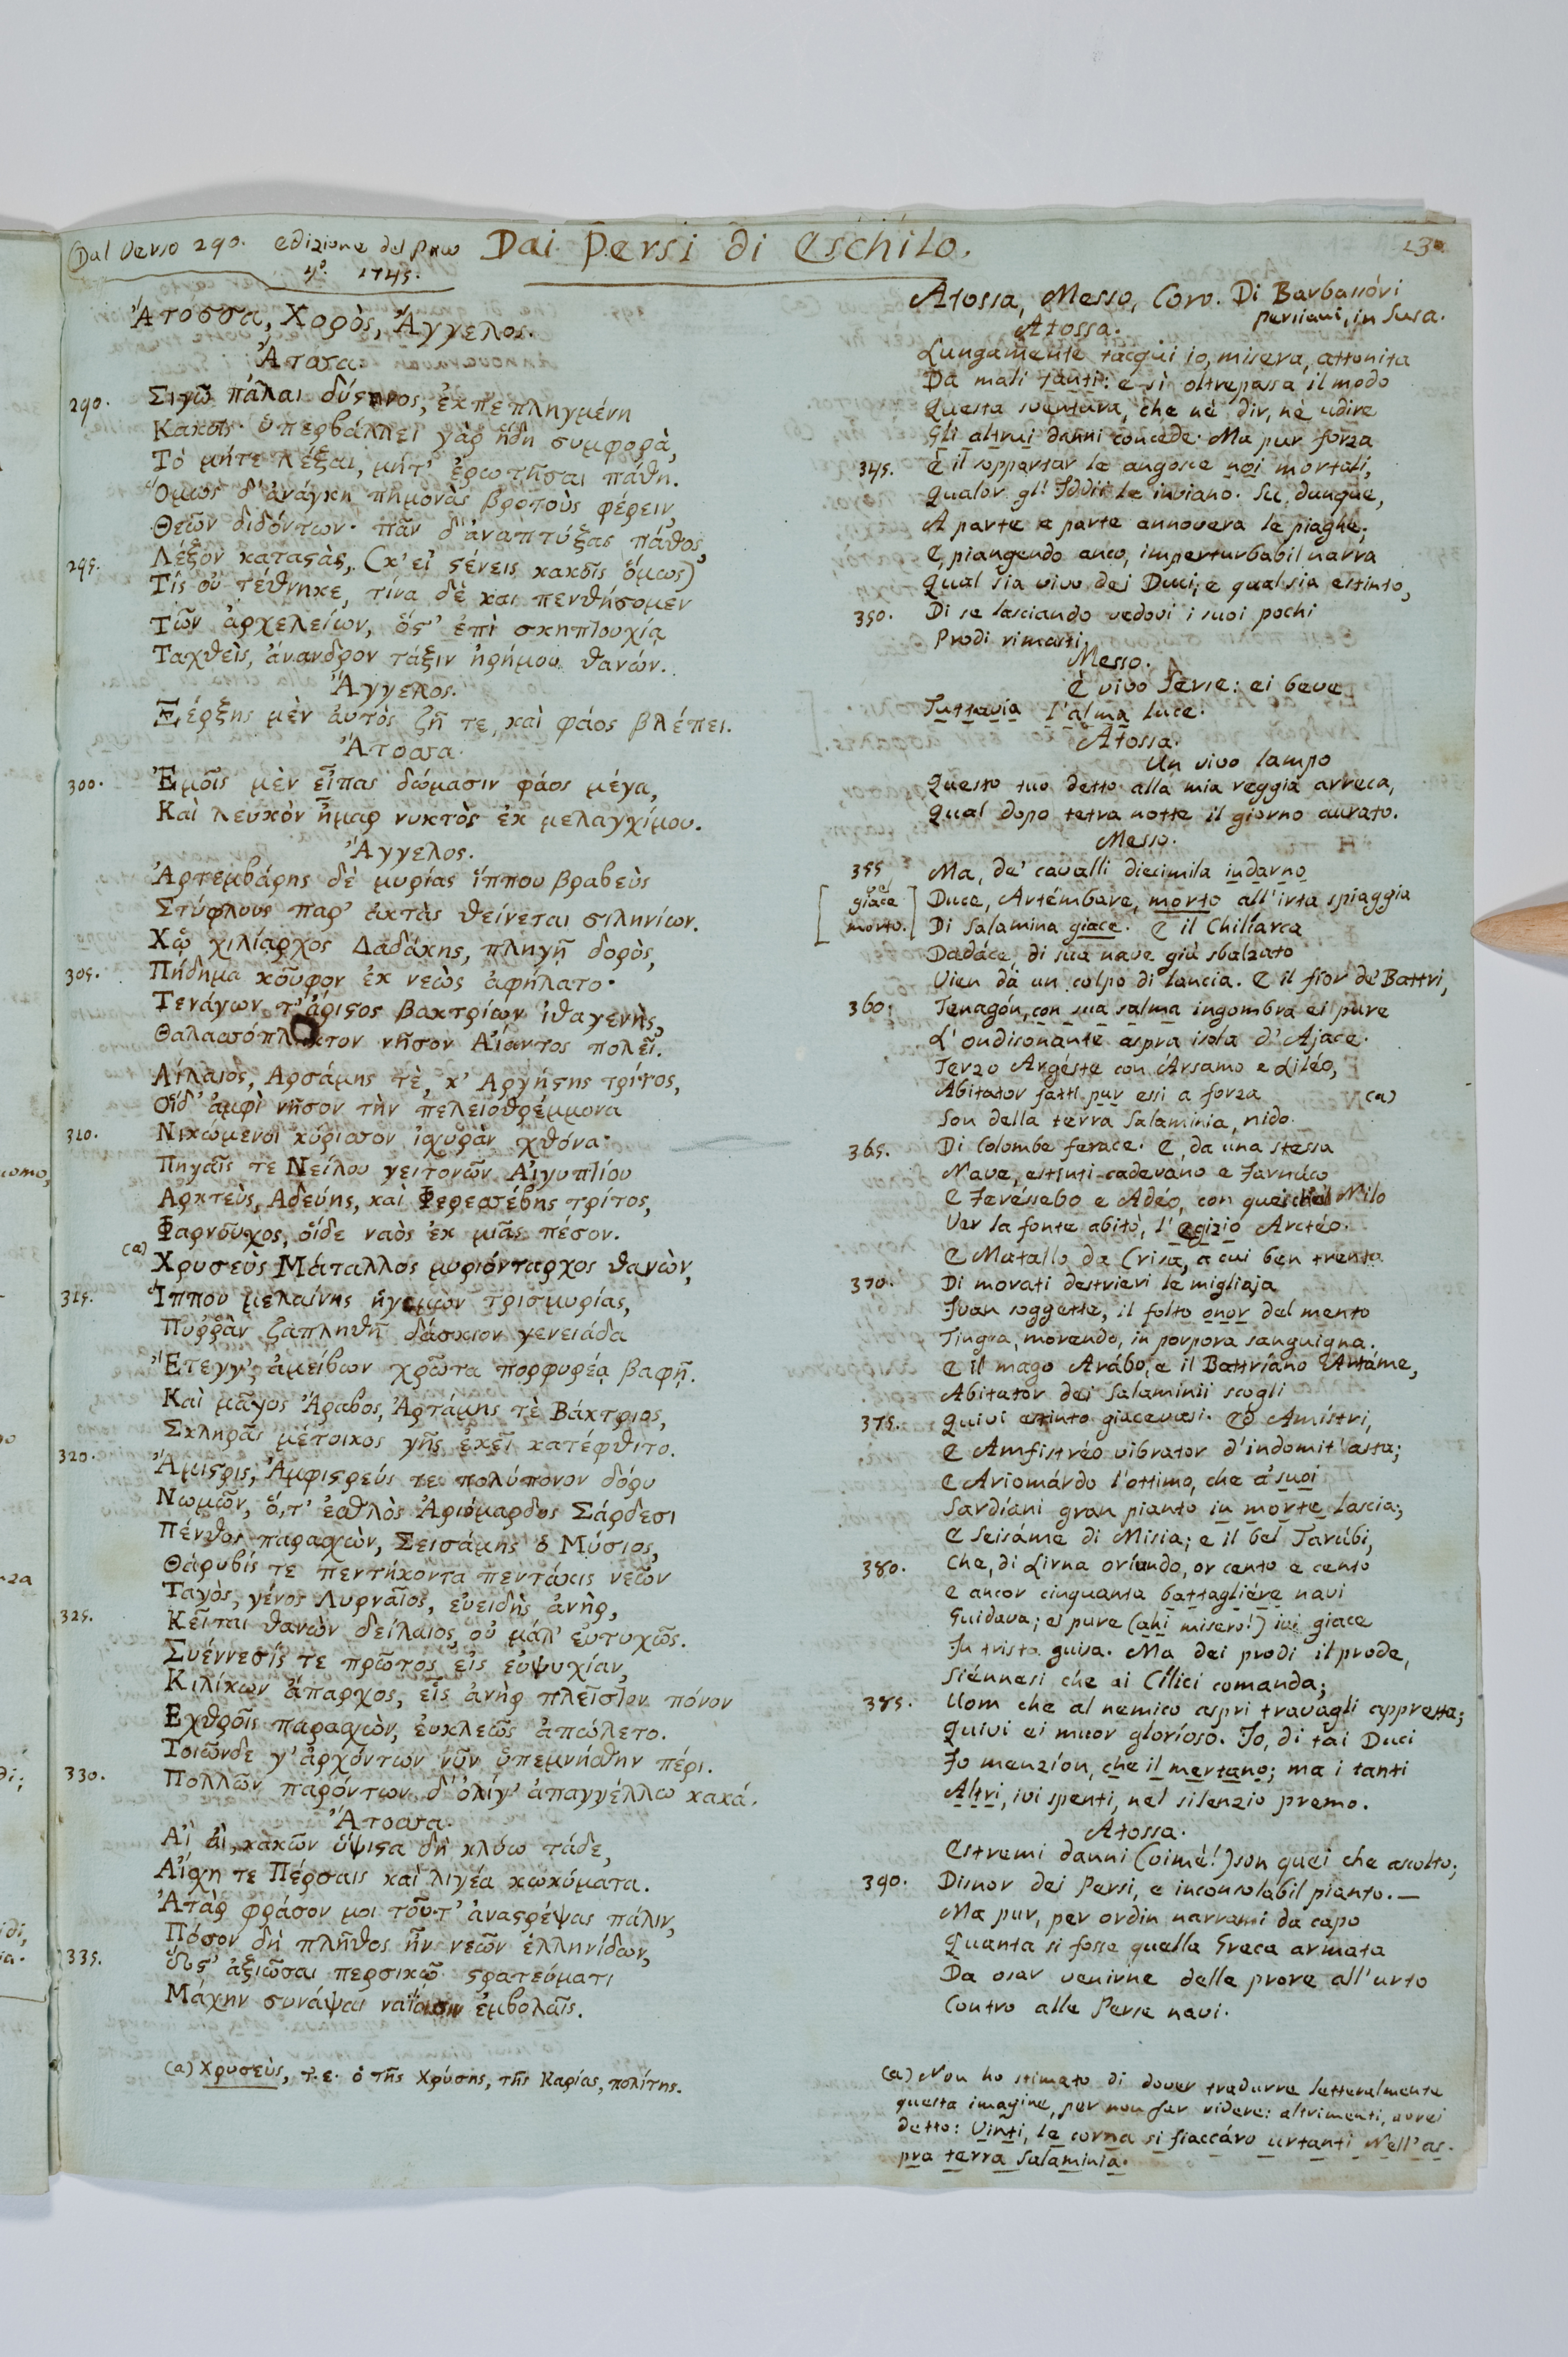 Dal Verso 290. edizione del Paw
4º. 1745.
Dai Persi di Eschilo.
130
Ἀτόσσα, Χορὸς, Ἄγγελος.
Ἄτοσσα.
290. Σιγῶ πάλαι δύςηνος, ἐκπεπληγμένη
Κακοῖς· ὑπερβάλλει γὰρ ἥδη συμφορὰ,
Τὸ μήτε λέξαι, μήτ' ἐρωτῆσαι πάθη.
Ὅμως δ' ἀνάγκη πημονὰς βροτοῖς φέρειν,
Θεῶν διδόντων· πᾶν δ' ἀναπτύξας πάθος,
295. Λέξον καταςὰς, (κ' εἰ ςένεις κακοῖς ὅμως)
Τίς οὐ τέθνηκε, τίνα δὲ και πενθήσομεν
Τῶν ἀρχελείων, ὅς' ἐπὶ σκηπτουχίᾳ
Ταχθεὶς, ἄνανδρον τάξιν ἠρήμου θανών.
Ἄγγελος.
Ξέρξης μὲν ἀυτὸς ζῆ τε, καὶ φάος βλέπει.
Ἄτοσσα.
300. Ἐμοῖς μὲν εἶπας δώμασιν φάος μέγα,
Καὶ λευκὸν ἦμαρ νυκτὸς ἐκ μελαγχίμου.
Ἄγγελος.
Ἀρτεμβάρης δὲ μυρίας ἵππου βραβεὺς
Στύφλους παρ' ἀκτὰς θείνεται σιληνίων.
Χᾠ χιλίαρχος Δαδάκης, πληγῇ δορὸς,
305. Πήδημα κοῦφον ἐκ νεὼς ἀφήλατο·
Τενάγων τ' ἄριςος βακτρίων ἰθαγενὴς,
Θαλασσόπληκτον νῆσον Αἴαντος πολεῖ.
Λίλαιος, Αρσάμης τὲ, κ' Αργήςης τρίτος,
Οἵδ' ἀμφὶ νῆσον τὴν πελειοθρέμμονα
310. Νικώμενοι κύρισσον ἰσχυρὰν χθόνα·
Πηγαῖς τε Νείλου γειτονῶν Αἰγυπτίου
Αρκτεὺς, Αδεύης, καὶ Φερεσσέβης τρίτος,
Φαρνοῦχος, οἵδε ναὸς ἐκ μιᾶς πέσον.
(a) Χρυσεὺς Μάταλλος μυριόνταρχος θανὼν,
315. Ἵππου μελαίνης ἡγεμὼν τρισμυρίας,
Πυρῥὰν ζαπληθῆ δάσκιον γενειάδα
Ἔτεγγ', ἀμείβων χρῶτα πορφυρέᾳ βαφῇ.
Καὶ μᾶγος Ἄραβος, Ἀρτάμης τὲ Βάκτριος,
Σκληρᾶς μέτοικος γῆς ἐκεῖ κατέφθιτο.
320. Ἄμιςρις, Ἀμφιςρεύς τε πολύπονον δόρυ
Νωμῶν, ὅ, τ' ἐσθλὸς Ἀριόμαρδος Σάρδεσι
Πένθος παρασχὼν, Σεισάμης ὁ Μύσιος,
Θάρυβίς τε πεντήκοντα πεντάκις νεῶν
Ταγὸς, γένος Λυρναῖος, εὐειδὴς ἀνὴρ,
325. Κεῖται θανὼν δείλαιος οὐ μάλ' εὐτυχῶς.
Συέννεσίς τε πρῶτος εἰς εὐψυχίαν,
Κιλίκων ἄπαρχος, εἷς ἀνὴρ πλεῖστον πόνον
Εχθροῖς παρασχὼν, ἐυκλεῶς ἀπώλετο.
Τοιῶνδε γ' ἀρχόντων νῦν ὑπεμνήσθην πέρι.
330. Πολλῶν παρόντων δ' ὀλίγ' ἀπαγγέλλω κακά.
Ἄτοσσα.
Αἲ αἲ, κακῶν ὕψιςα δὴ κλύω τάδε,
Αἴσχη τε Πέρσαις καὶ λιγέα κωκύματα.
Ἀτὰρ φράσον μοι τοῦτ' ἀναςρέψας πάλιν,
Πόσον δὴ πλῆθος ἦν νεῶν ἑλληνίδων,
335. Ὥς' ἀξιῶσαι περσικῷ ςρατεύματι
Μάχην συνάψαι ναΐοισιν ἐμβολαῖς.
(a) Χρυσεὺς, τ.ε. ὁ τῆς Χρύσης, τῆς Καρίας, πολίτης.
Atossa, Messo, Coro. Di Barbassóri
persiani, in Susa.
Atossa.
Lungamente tacqui io, misera, attonita
Da mali tanti: e sì oltrepassa il modo
Questa sventura, che nè dir, nè udire
Gli altrui danni concede. Ma pur forza
345. È il sopportar le angosce noi mortali,
Qualor gl' Iddii le inviano. Su, dunque,
A parte a parte annovera le piaghe;
E, piangendo anco, imperturbabil narra
Qual sia vivo dei Duci, e qual sia estinto,
350. Di se lasciando vedovi i suoi pochi
Prodi rimasti.
Messo.
È vivo Serse: ei beve
Tuttavia l'alma luce.
Atossa.
Un vivo lampo
Questo tuo detto alla mia reggia arreca,
Qual dopo tetra notte il giorno aurato.
Messo.
355. Ma, de' cavalli diecimila indarno
[giace Duce, Artémbare, morto all'irta spiaggia
morto.] Di Salamina giace. E il Chilíarca
Dadáce, di sua nave giù sbalzato
Vien da un colpo di lancia. E il fior de' Battri,
360. Tenagón, con sua salma ingombra ei pure
L'ondisonante aspra isola d'Ajace.
Terzo Argéste con Ársamo e Liléo,
Abitator fatti pur essi a forza (a)
Son della terra Salaminia, nido
365. Di Colombe ferace. E, da una stessa
Nave, estinti cadevano e Farnúco
E Feréssebo e Adéo, con quei che'l Nilo
Ver la fonte abitò, l'egizio Arctéo.
E Matallo da Crisa, a cui ben trenta
370. Di morati destrieri le migliaja
Fuan soggette, il folto onor del mento
Tingea, morendo, in porpora sanguigna.
E il mago Arábo, e il Battríano Artáme,
Abitator dei Salaminii scogli
375. Quivi estinto giacevasi. Ed Amístri,
E Amfistréo vibrator d'indomit' asta;
E Ariomárdo l'ottimo, che a' suoi
Sardíani gran pianto in morte lascia;
E Seisáme di Misia; e il bel Taríbi,
380. Che, di Lirna oriundo, or cento e cento
E ancor cinquanta battagliére navi
Guidava; ei pure (ahi misero!) ivi giace
In trista guisa. Ma dei prodi il prode,
Siénnesi che ai Cílici comanda;
385. Uom che al nemico aspri travagli appresta;
Quivi ei muor glorioso. Io, di tai Duci
Fo menzíon, che il mertano; ma i tanti
Altri, ivi spenti, nel silenzio premo.
Atossa.
Estremi danni (oimè!) son quei che ascolto;
390. Disnor dei Persi, e inconsolabil pianto.—
Ma pur, per ordin narrami da capo
Quanta si fosse quella Greca armata
Da osar venirne delle prore all'urto
Contro alle Perse navi.
(a) Non ho stimato di dover tradurre letteralmente
questa imagine, per non far ridere: altrimenti, avrei
detto: Vinti, le corna si fiaccáro urtanti Nell'as-
pra terra Salaminia.